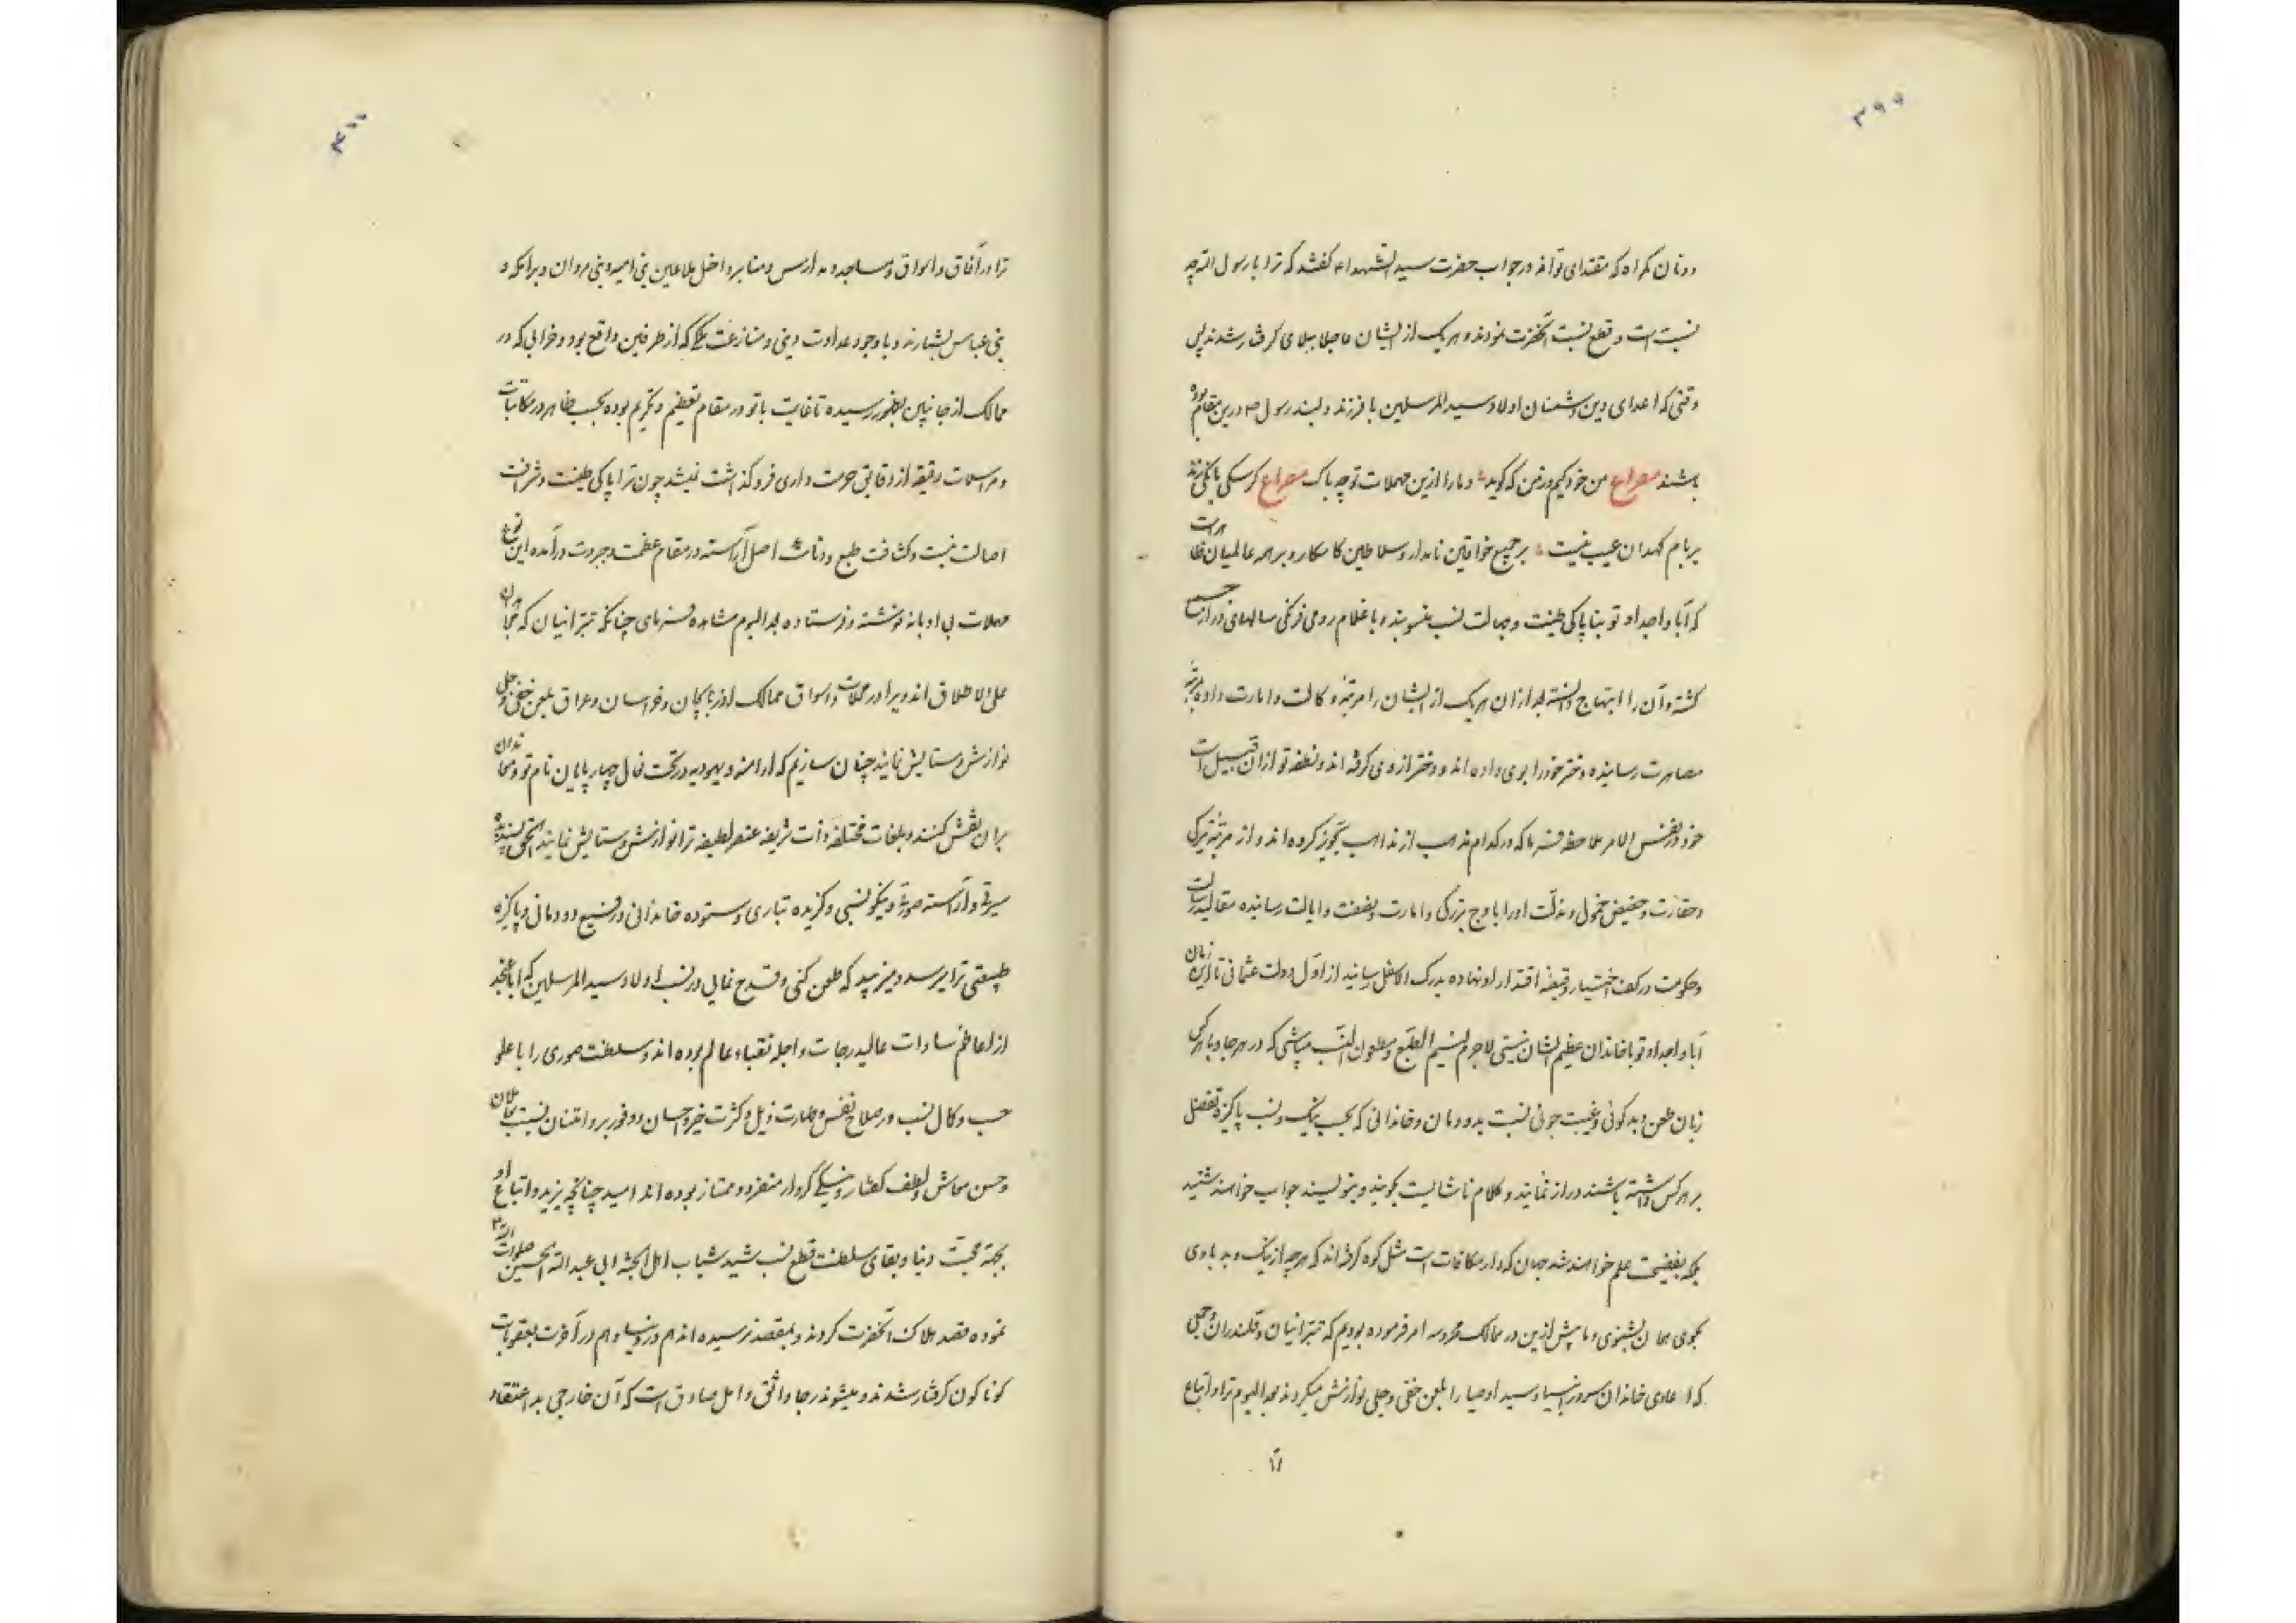 ۳۹۹
دونان کمراه که مقتدای تواند در جواب حضرت سید الشهداء گفتند که ترا با رسول الله چه
نسبت است و قطع نسبت آنحضرت نمودند و هر یک از ایشان عاجلا ببلای گرفتار شدند پس
وقتی که اعدای دین و دشمنان اولاد سید المرسلین با فرزند دلبند رسول ص درین مقام بوده
باشند مصراع من خود کیم و زمن که گوید و ما را ازین مهملات تو چه باک مصراع گر سگی بانکی زند
بر بام کهدان عیب نیست بر جمیع خواقین نامدار و سلاطین کامکار و بر همه عالمیان ظاهرست
که آبا و اجداد تو بناپاکی طینت و جهالت نسب منسوبند و با غلام رومی فرنکی سالها می در
کشته و آن را ابتهاج دانسته بعد از ان هر یک از ایشان را مرتبه وکالت و امارت داده بمرتبه
مصاهرت رسانیده دختر خود را بوی داده اند و دختر از وی گرفته اند و نطفه تو از ان قبیل است
خود در نفس الامر ملاحظه فرما که در کدام مذهب از مذاهب تجویز کرده اند و از مرتبه
و حقارت و حضیض خمول و مذلت او را باوج بزرگی و امارت و رفعت و ایالت رسانیده مقالید رسالت
و حکومت در کف اختیار و قبضه اقتدار او نهاده بدرک الاسفل رسانید از اول دولت عثمانی تا این زمان
آبا و اجداد تو با خاندان عظیم الشان نیستی لاجرم لئیم الطبع و مطعون النسب میباشی که در هر جا و با هر کس
زبان طعن و بد گوئی و غیبت جوئی نسبت بدودمان و خاندانی که بحسب نیک و نسب پاکیزه تفضل
بر هر کس داشته باشند دراز نمایند و کلام ناشایست گویند و بنویسند جواب خواهند شنید
بلکه بفضیحت علم خواهند شد جهان که دار مکافات است مثل کوه گرفته اند که هر چه از نیک و بد با وی
بگوی همان بشنوی و ما پیش ازین در ممالک محروسه امر فرموده بودیم که تبرائیان و قلندران و جمعی
که اعادی خاندان سرور انبیا و سید اوصیا را بلعن خفی و جلی نوازش میکردند بعد الیوم ترا و اتباع
ترا
۴۰۰
ترا در آفاق و اسواق و مساجد و مدارس و منابر داخل ملاعین بنی امیه و بنی مروان و برامکه و
بنی عباس بشمارند و با وجود عداوت دینی و منازعت ملکی که از طرفین واقع بود و خرابی که در
ممالک از جانبین بظهور رسیده تا غایت با تو در مقام تعظیم و تکریم بوده بحسب ظاهر در مکاتبات
و مراسلات دقیقه از دقایق حرمت داری فرو گذاشت نمیشد چون ترا پاکی طینت و شرافت
اصالت نیست و کثافت طبع و دنائت اصل آراسته در مقام عظمت و جبروت درآمده این نوع
مهملات بی ادبانه نوشته و فرستاده بعد الیوم مشاهده فرمای چنانکه تبرائیان که
علی الاطلاق اند و یرا در محلات و اسواق ممالک آذربایجان و خراسان و عراق بلعن خفی و جلی
نوازش و ستایش نمایند چنان سازیم که ارامنه و یهود در تحت نعال چهار پایان نام تو و
بران نقش کنند و بلغات مختلفه ذات شریفه عنصر لطیفه ترا نوازش و ستایش نمایند الحق پسندیده
سیرتی و آراسته صورتی و نیکو نسبی و گزیده تباری و ستوده خاندانی و رفیع دودمانی و پاکیزه
طینتی ترا میرسد و میزیبد که طعن کنی و قدح نمایی در نسب اولاد سید المرسلین که ابا عن جد
از اعاظم سادات عالیدرجات و اجله نقباء عالم بوده اند و سلطنت صوری را با علو
حسب و کمال نسب و صلاح نفس و طهارت ذیل و کثرت خیر و احسان و وفور بر و امتنان نسبت
و حسن معاش و لطف گفتار و نیکی کردار منفرد و ممتاز بوده اند امید چنانچه یزید و اتباع او
بجهة محبت دنیا و بقای سلطنت قطع نسب سید شباب اهل الجنة ابی عبد الله الحسین صلوات الله
نموده قصد هلاک آنحضرت کردند و بمقصد نرسیده اند هم در دنیا و هم در آخرت بعقوبات
کوناکون گرفتار شدند و میشوند رجا واثق و امل صادق است که آن خارجی بد اعتقاد